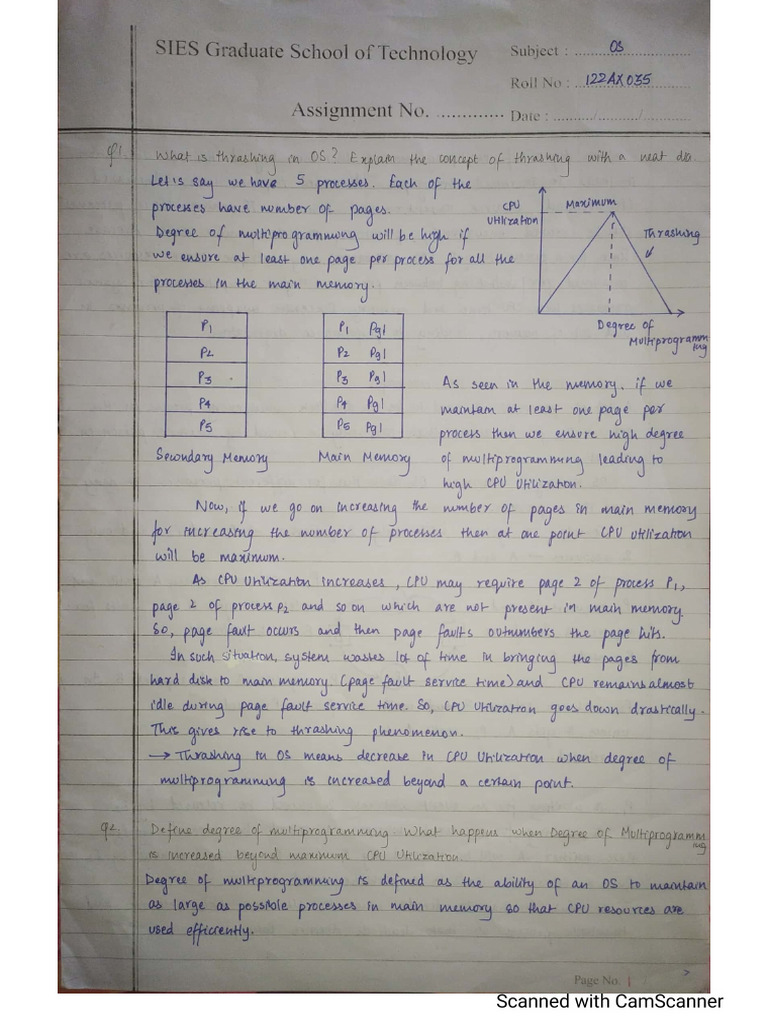 SIES Graduate School of Technology
Subject : OS
Roll No : 122AX035
Assignment No. .............
Date : ........../.........../...........
Q1. What is thrashing in OS? Explain the concept of thrashing with a neat dia.
Let's say we have 5 processes. Each of the
processes have number of pages.
Degree of multiprogramming will be high if
we ensure at least one page per process for all the
processes in the main memory.
CPU
Utilization
Maximum
Thrashing
Degree of
Multiprogramm
ing
P1
P2
P3
P4
P5
Secondary Memory
P1 Pg1
P2 Pg1
P3 Pg1
P4 Pg1
P5 Pg1
Main Memory
As seen in the memory, if we
maintain at least one page per
process then we ensure high degree
of multiprogramming leading to
high CPU Utilization.
Now, if we go on increasing the number of pages in main memory
for increasing the number of processes then at one point CPU utilization
will be maximum.
As CPU utilization increases, CPU may require page 2 of process P1,
page 2 of process P2 and so on which are not present in main memory.
So, page fault occurs and then page faults outnumbers the page hits.
In such situation, system wastes lot of time in bringing the pages from
hard disk to main memory. (page fault service time) and CPU remains almost
idle during page fault service time. So, CPU Utilization goes down drastically.
This gives rise to thrashing phenomenon.
→ Thrashing in OS means decrease in CPU Utilization when degree of
multiprogramming is increased beyond a certain point.
Q2. Define degree of multiprogramming. What happens when Degree of Multiprogramm
ing
is increased beyond maximum CPU Utilization.
Degree of multiprogramming is defined as the ability of an OS to maintain
as large as possible processes in main memory so that CPU resources are
used efficiently.
Page No. 1
Scanned with CamScanner